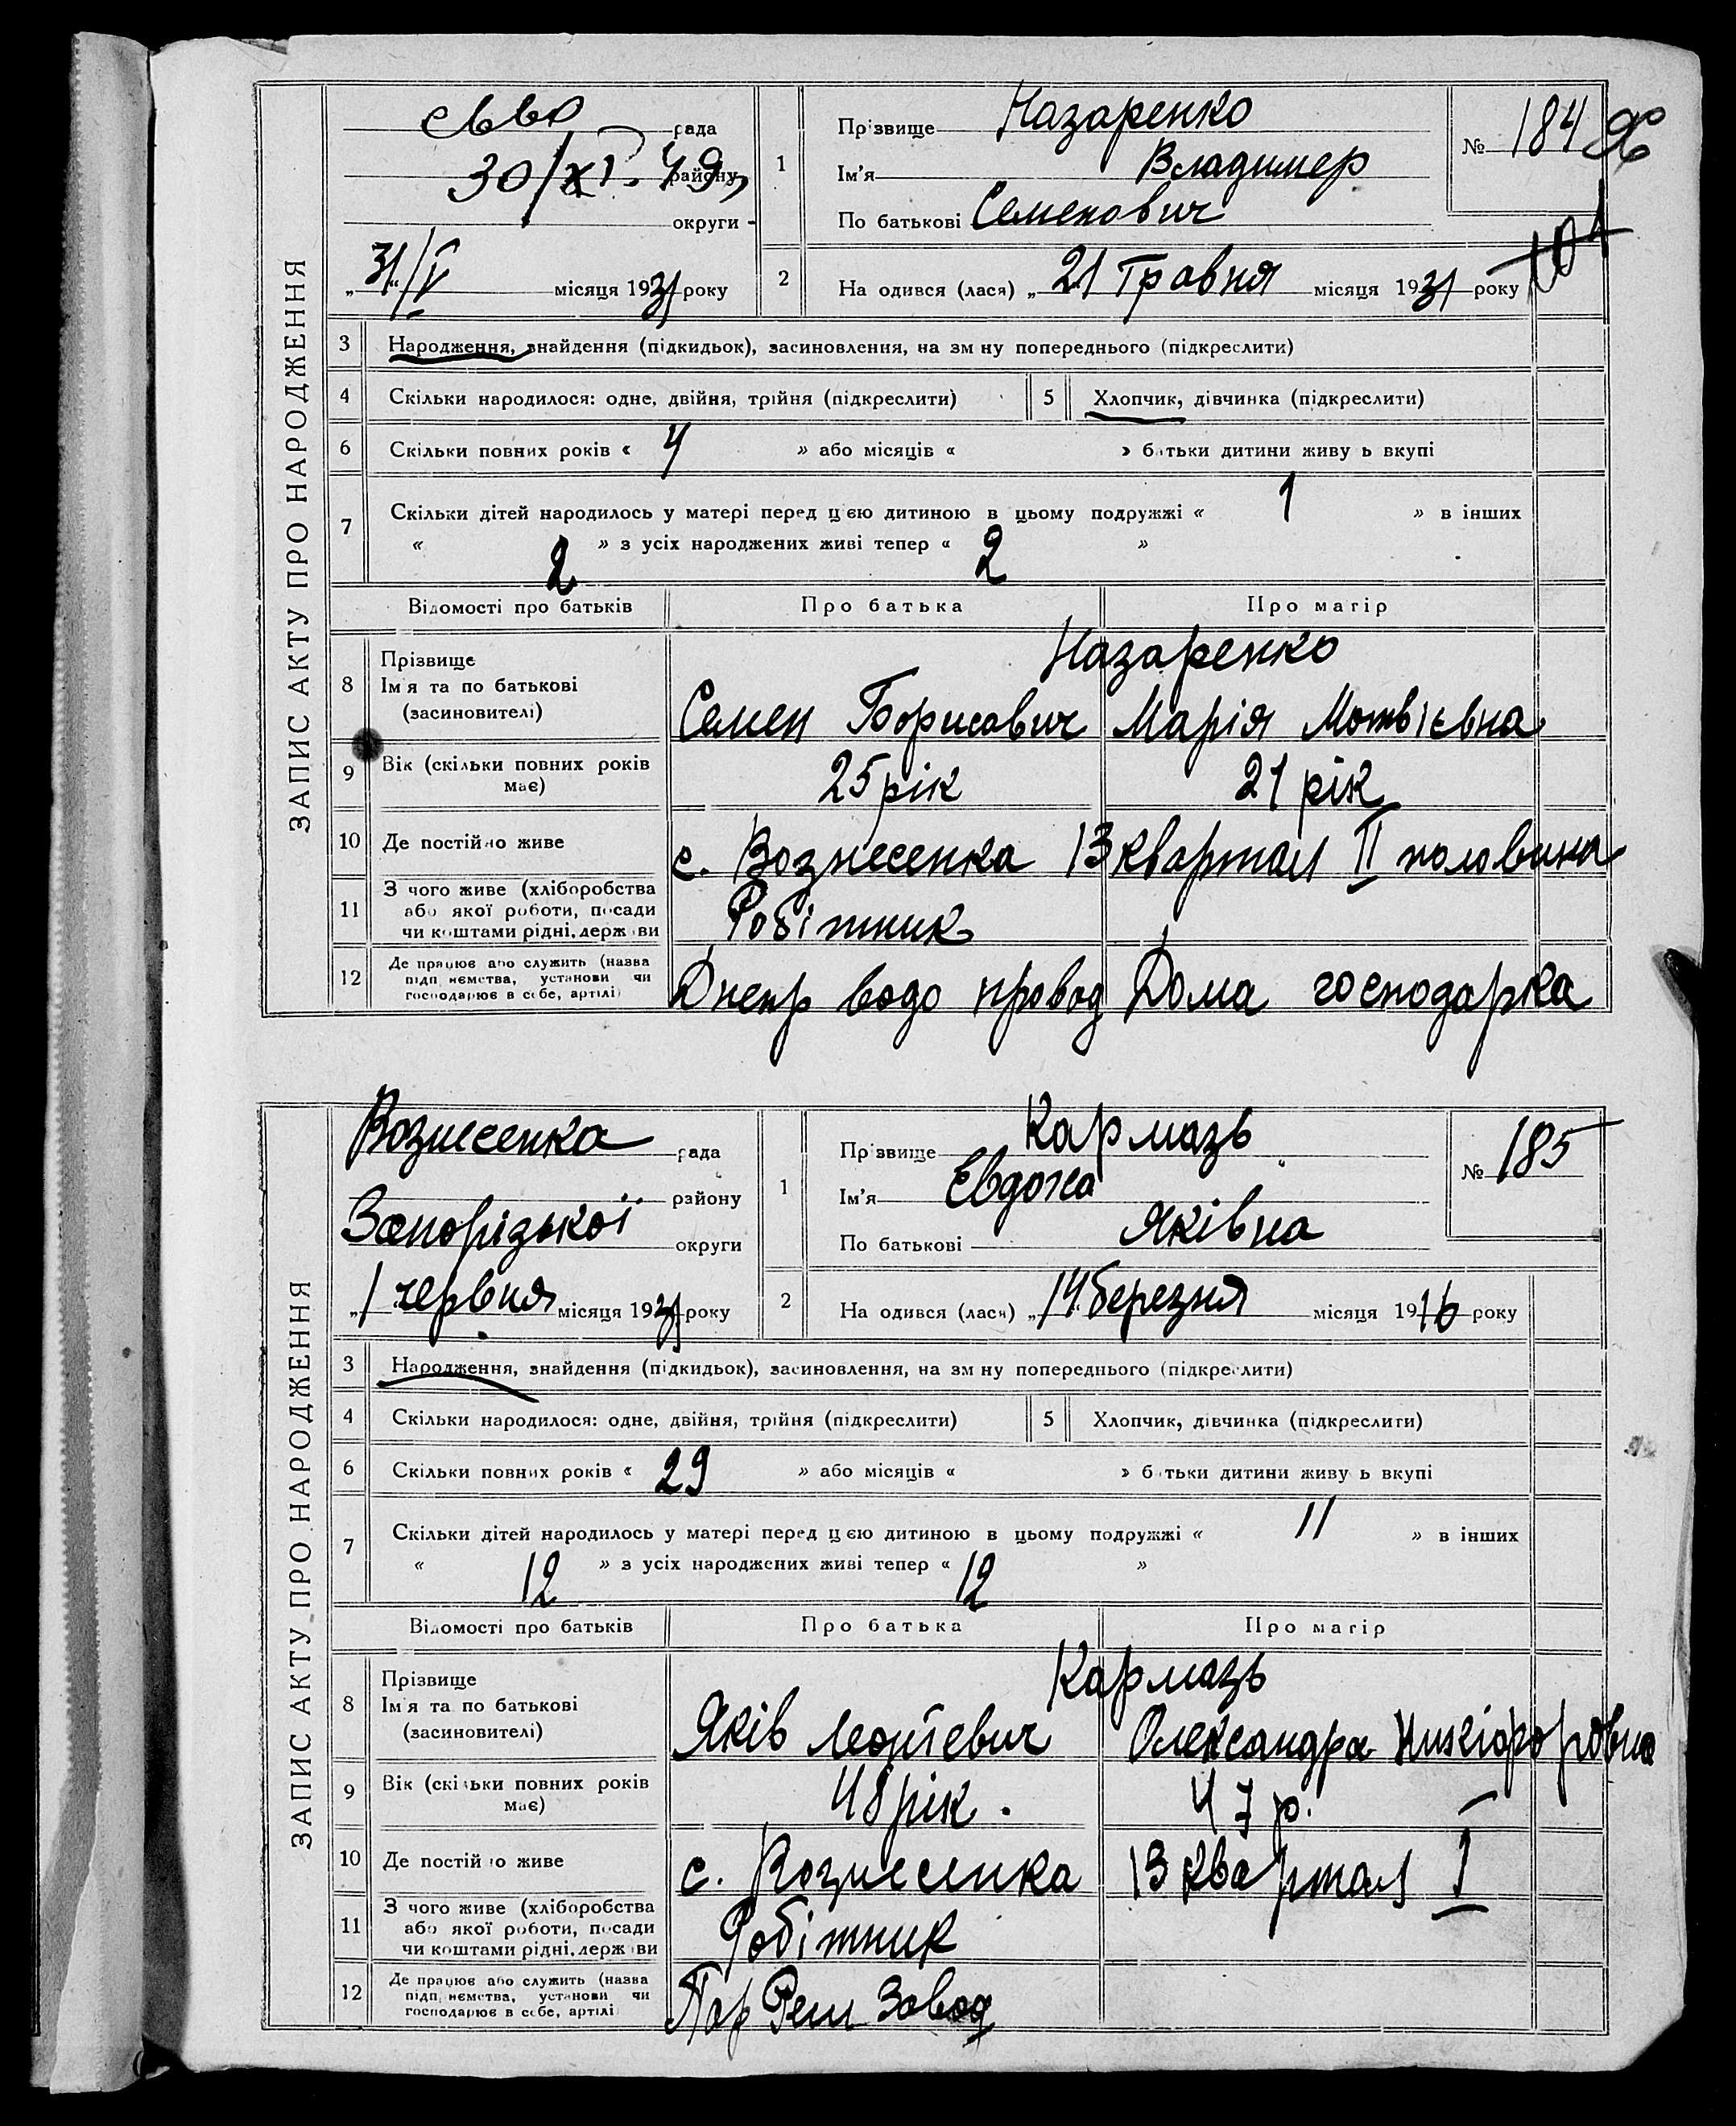 ЗАПИС АКТУ ПРО НАРОДЖЕННЯ
рада
30/XI. 49
району
округи
„31/V місяця 1931 року
1
Прізвище Назаренко
Ім'я Владимер
По батькові Семенович
№ 184
2
На одився (лася) „21 Травня місяця 1931 року
3 Народження, знайдення (підкидьок), засиновлення, на зм ну попереднього (підкреслити)
4 Скільки народилося: одне, двійня, трійня (підкреслити) 5 Хлопчик, дівчинка (підкреслити)
6 Скільки повних років « 4 » або місяців « » батьки дитини живу ь вкупі
7 Скільки дітей народилось у матері перед цією дитиною в цьому подружжі « 1 » в інших
« 2 » з усіх народжених живі тепер « 2 »
Відомості про батьків Про батька Про матір
8 Прізвище
Ім'я та по батькові
(засиновителі)
Назаренко
Семен Борисович Марія Мотвієвна
9 Вік (скільки повних років
має)
25 рік 21 рік
10 Де постійно живе
с. Вознесенка 13 квартал II половина
11 З чого живе (хліборобства
або якої роботи, посади
чи коштами рідні, держ ви
Робітник
12 Де працює або служить (назва
підп иємства, установи чи
господарює в себе, артілі)
Днепр водо провод Дома господарка
ЗАПИС АКТУ ПРО НАРОДЖЕННЯ
Вознесенка рада
району
Запорізької округи
„1 червня місяця 1931 року
1
Прізвище Кармазь
Ім'я Евдоха
По батькові Яківна
№ 185
2
На одився (лася) „14 березня місяця 1916 року
3 Народження, знайдення (підкидьок), засиновлення, на зм ну попереднього (підкреслити)
4 Скільки народилося: одне, двійня, трійня (підкреслити) 5 Хлопчик, дівчинка (підкреслити)
6 Скільки повних років « 29 » або місяців « » батьки дитини живу ь вкупі
7 Скільки дітей народилось у матері перед цією дитиною в цьому подружжі « 11 » в інших
« 12 » з усіх народжених живі тепер « 12 »
Відомості про батьків Про батька Про матір
8 Прізвище
Ім'я та по батькові
(засиновителі)
Кармазь
Яків Олександра
9 Вік (скільки повних років
має)
48 рік. 47 р.
10 Де постійно живе
с. Вознесенка 13 квартал I
11 З чого живе (хліборобства
або якої роботи, посади
чи коштами рідні, держ ви
Робітник
12 Де працює або служить (назва
підп иємства, установи чи
господарює в себе, артілі
Пар Рем Завод